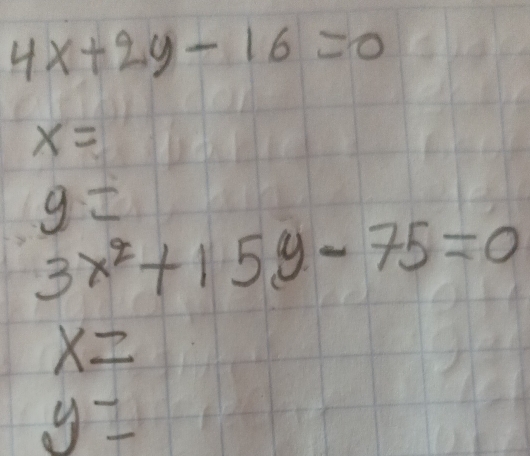 4x+2y-16=0
x=
y=
3x²+15y-75=0
x=
y=